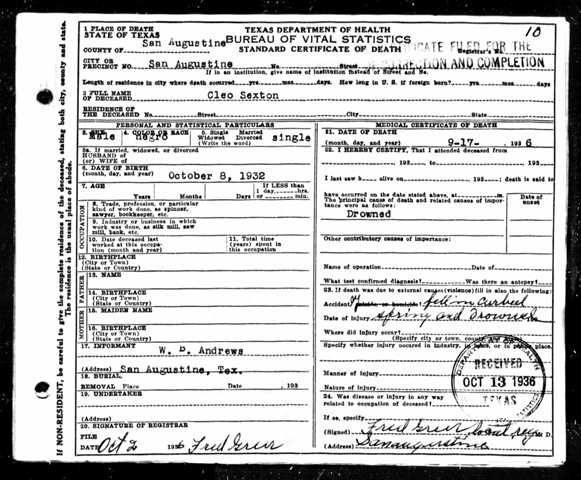 10
1 PLACE OF DEATH
STATE OF TEXAS
TEXAS DEPARTMENT OF HEALTH
BUREAU OF VITAL STATISTICS
STANDARD CERTIFICATE OF DEATH
COUNTY OF San Augustine
CATE FILED FOR THE
CORRECTION AND COMPLETION
Registrar's No.
CITY OR
PRECINCT NO. San Augustine No. Street
If in an institution, give name of institution instead of Street and No.
Length of residence in city where death occurred yrs. mos. days. How long in U. S. if foreign born? yrs. mos. days
2 FULL NAME
OF DECEASED Cleo Sexton
RESIDENCE OF
THE DECEASED No. Street City State
PERSONAL AND STATISTICAL PARTICULARS
3. SEX 4. COLOR OR RACE 5. Single Married
Widowed Divorced
(Write the word)
Male negro single
5a. If married, widowed, or divorced
HUSBAND of
(or) WIFE of
6. DATE OF BIRTH
(month, day, and year) October 8, 1932
7. AGE Years Months Days If LESS than
1 day hrs.
or min.
OCCUPATION
8. Trade, profession, or particular
kind of work done, as spinner,
sawyer, bookkeeper, etc.
9. Industry or business in which
work was done, as silk mill, saw
mill, bank, etc.
10. Date deceased last
worked at this occupa-
tion (month and year)
11. Total time
(years) spent in
this occupation
12. BIRTHPLACE
(City or Town)
(State or Country)
FATHER
13. NAME
14. BIRTHPLACE
(City or Town)
(State or Country)
MOTHER
15. MAIDEN NAME
16. BIRTHPLACE
(City or Town)
(State or Country)
17. INFORMANT W. D. Andrews
(Address) San Augustine, Tex.
18. BURIAL
REMOVAL Place Date , 193
19. UNDERTAKER
(Address)
20. SIGNATURE OF REGISTRAR
FILE
DATE Oct 2 1936 Fred Greer
MEDICAL CERTIFICATE OF DEATH
21. DATE OF DEATH
(month, day, and year) 9-17- 1936
22. I HEREBY CERTIFY, That I attended deceased from
193 to 193
I last saw h alive on 193 ; death is said to
have occurred on the date stated above, at m.
The principal cause of death and related causes of impor-
tance were as follows:
Date of
onset
Drowned
Other contributory causes of importance:
Name of operation Date of
What test confirmed diagnosis? Was there an autopsy?
23. If death was due to external causes (violence) fill in also the following:
Accident, fell in
Date of injury spring and
Where did injury occur?
(Specify city or town, county,
Specify whether injury occurred in industry, in home, or in public place.
Manner of injury
Nature of injury
24. Was disease or injury in any way
related to occupation of deceased?
If so, specify
(Signed) Fred Greer local reg M. D.
(Address) San Augustine
RECEIVED
OCT 13 1936
TEXAS
If NON-RESIDENT, be careful to give the complete residence of the deceased, stating both city, county and state.
The residence is the usual place of abode.